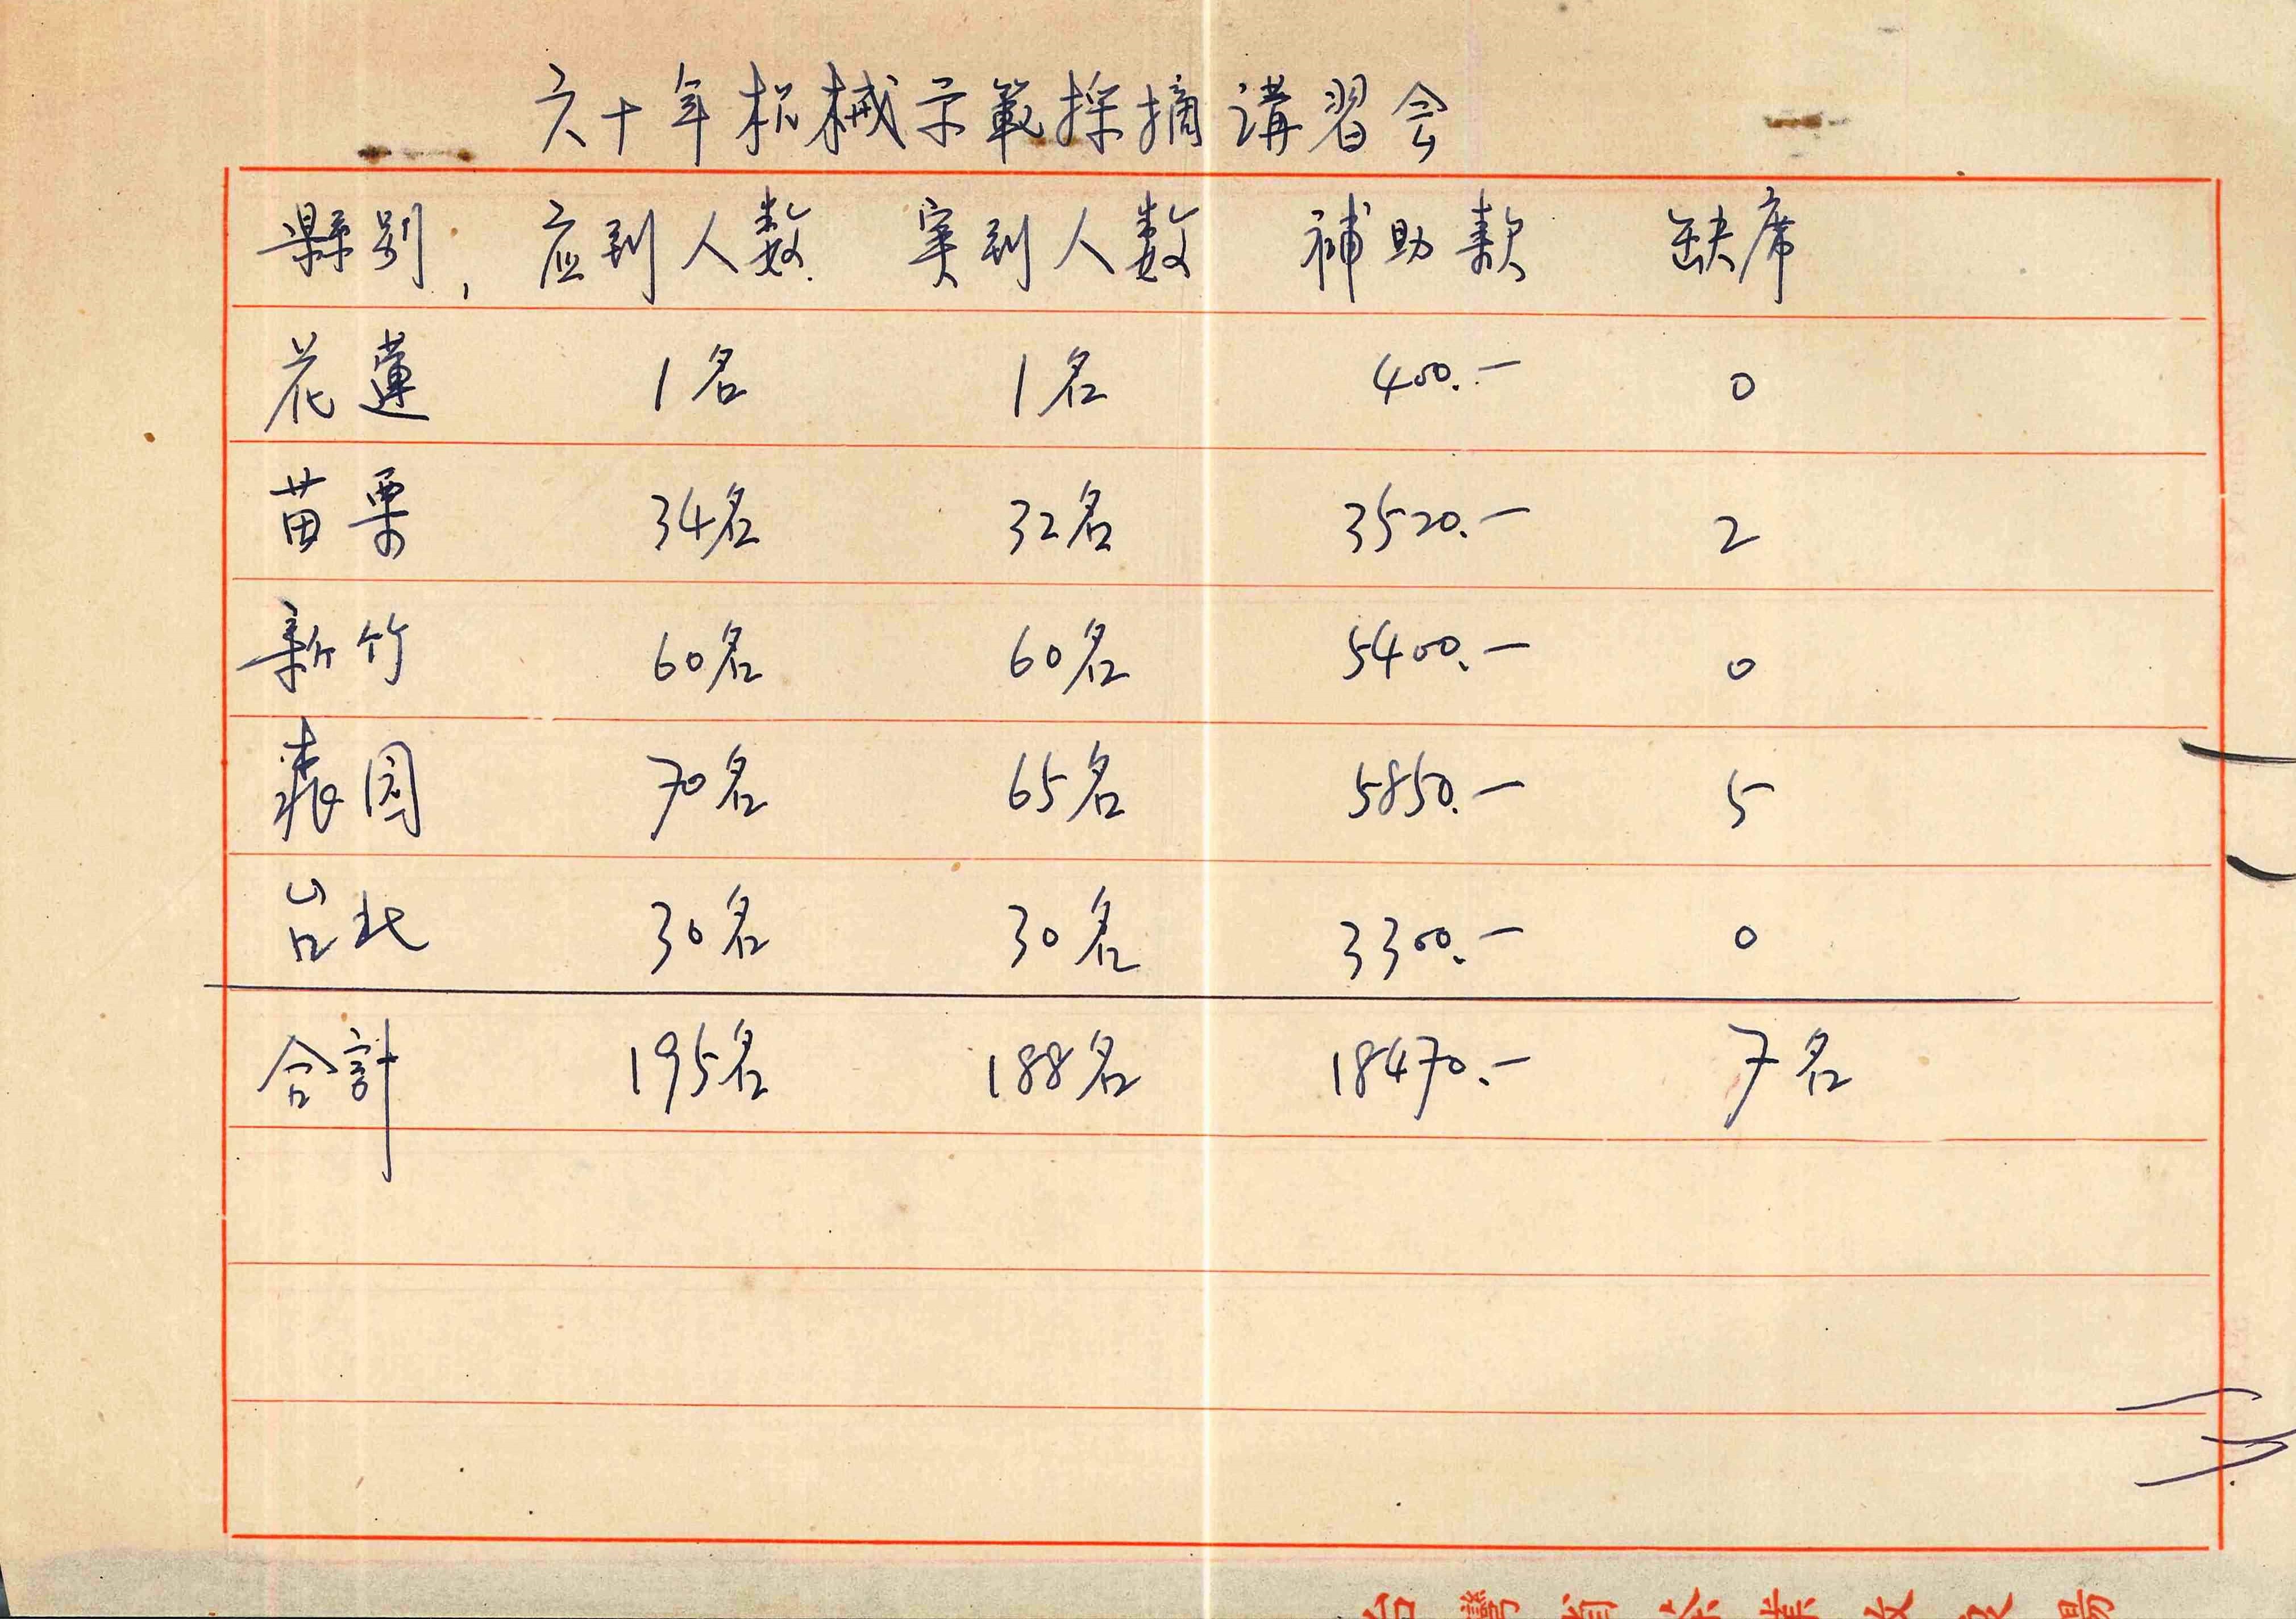 六十年机械示範採摘講習会
縣別, 应到人数. 实到人数 補助款 缺席
花蓮 1名 1名 400.- 0
苗栗 34名 32名 3520.- 2
新竹 60名 60名 5400.- 0
桃园 70名 65名 5850.- 5
台北 30名 30名 3300.- 0
合計 195名 188名 18470.- 7名